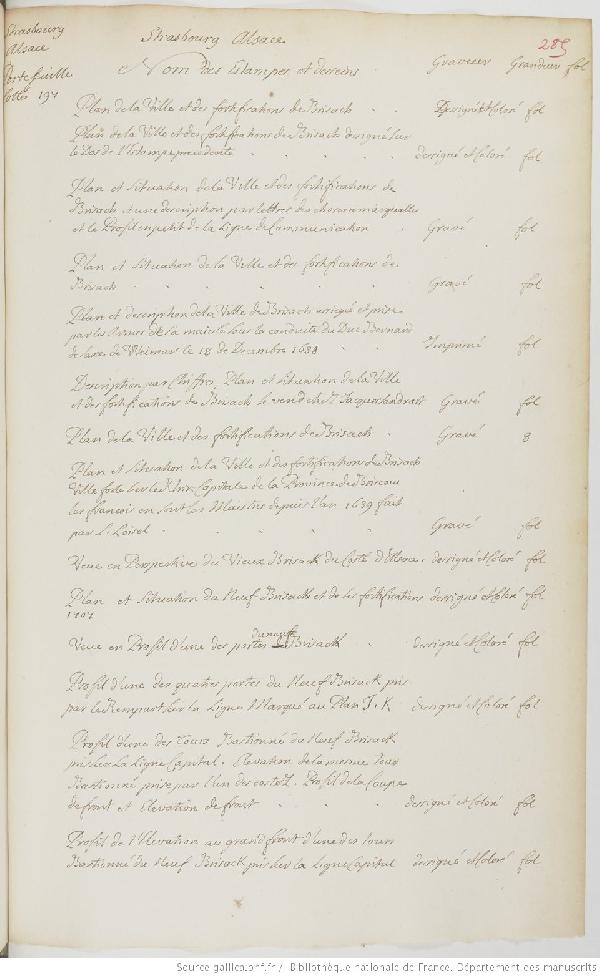 Strasbourg
Alsace
Portefeuille
Cotté 137
Strasbourg Alsace
285
Nom des Estampes et desseins Graveur Grandeur fol
Plan de la Ville et des fortifications de Brisach . . Dessigné et Coloré fol
Plan de la Ville et des fortifications de Brisach dessigné sur
le Dos de l'Estampe precedente . . . . dessigné et Coloré fol
Plan et Situation de la Ville et des fortifications de
Brisach et une description par lettres des choses remarquables
et le Profil en petit de la Ligne de Communication Gravé fol
Plan et Situation de la Ville et des fortifications de
Brisach . . . . . Gravé fol
Plan et description de la Ville de Brisach assiegé et prise
par les Armes de sa maiesté sous la conduite du Duc Bernard
de Saxe de Weimar le 18 de Decembre 1638 . Imprimé fol
Description par Chiffres, Plan et Situation de la Ville
et des fortifications de Brisach se vend chez Jacques Landrast Gravé fol
Plan de la Ville et des fortifications de Brisach . Gravé 8
Plan et Situation de la Ville et des fortifications de Brisach
Ville forte sur le Rhin Capitale de la Province de Briscau
les francois en sont les Maistres depuis l'an 1639 fait
par L. Loisel . . . . Gravé fol
Veue en Perspective du Vieux Brisack du Costé d'Alsace . dessigné et Coloré fol
Plan et Situation du Neuf Brisack et de ses fortifications dessigné et Coloré fol
1707
Veue en Profil d'une des portes du neuf Brisack . dessigné et Coloré fol
Profil d'une des quatres portes du Neuf Brisack pris
par le Rempart sur la Ligne Marqué au Plan I.K dessigné et Coloré fol
Profil d'une des Tours Bastionné du Neuf Brisack
pris sur la Ligne Capital. Elevation de la mesme Tour
Bastionné prise par l'un des costez. Profil de la Coupe
de front et Elevation de front . . . dessigné et Coloré fol
Profil de l'Elevation au grand front d'une des tours
Bastionné du Neuf Brisack pris sur la Ligne Capital dessigné et Coloré fol
Source gallica.bnf.fr / Bibliothèque nationale de France. Département des manuscrits